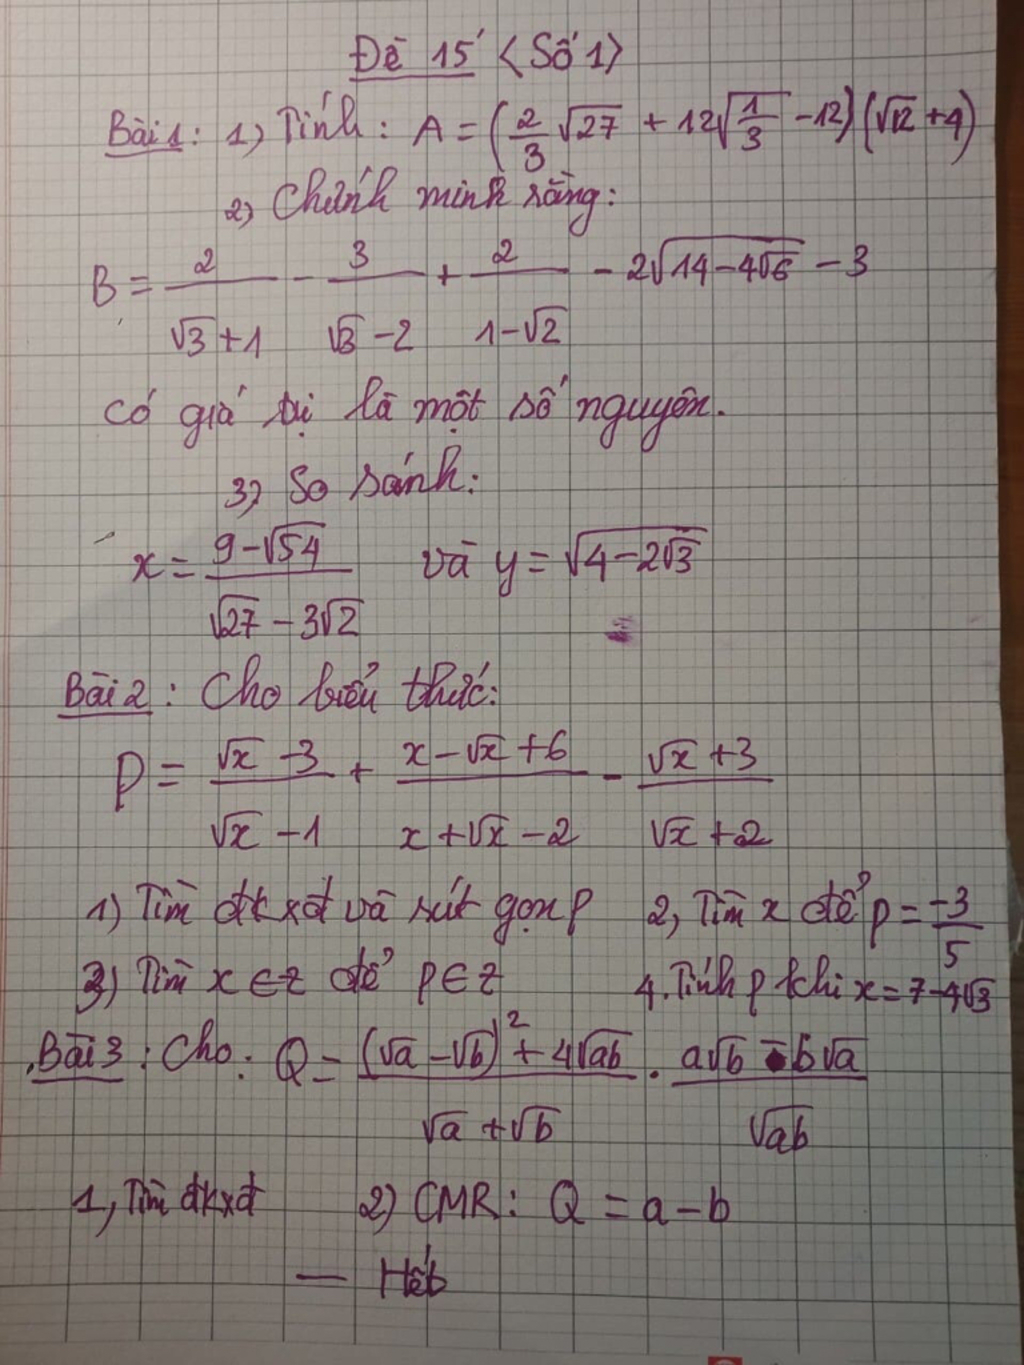 Đề 15' <Số 1>
Bài 1: 1) Tính: A = (2/3 √27 + 12√(1/3) - 12)(√12 + 4)
2) Chứnh minh rằng:
B = 2/(√3 + 1) - 3/(√3 - 2) + 2/(1 - √2) - 2√(14 - 4√6) - 3
có giá trị là một số nguyên.
3) So sánh:
x = (9 - √54)/(√27 - 3√2) và y = √(4 - 2√3)
Bài 2: Cho biểu thức:
P = (√x - 3)/(√x - 1) + (x - √x + 6)/(x + √x - 2) - (√x + 3)/(√x + 2)
1) Tìm đkxđ và rút gọn P 2, Tìm x để P = -3/5
3) Tìm x ∈ Z để P ∈ Z 4. Tính P khi x = 7 - 4√3
Bài 3: Cho: Q = ((√a - √b)² + 4√ab)/(√a + √b) . (a√b - b√a)/√ab
1, Tìm đkxđ 2) CMR: Q = a - b
— Hết